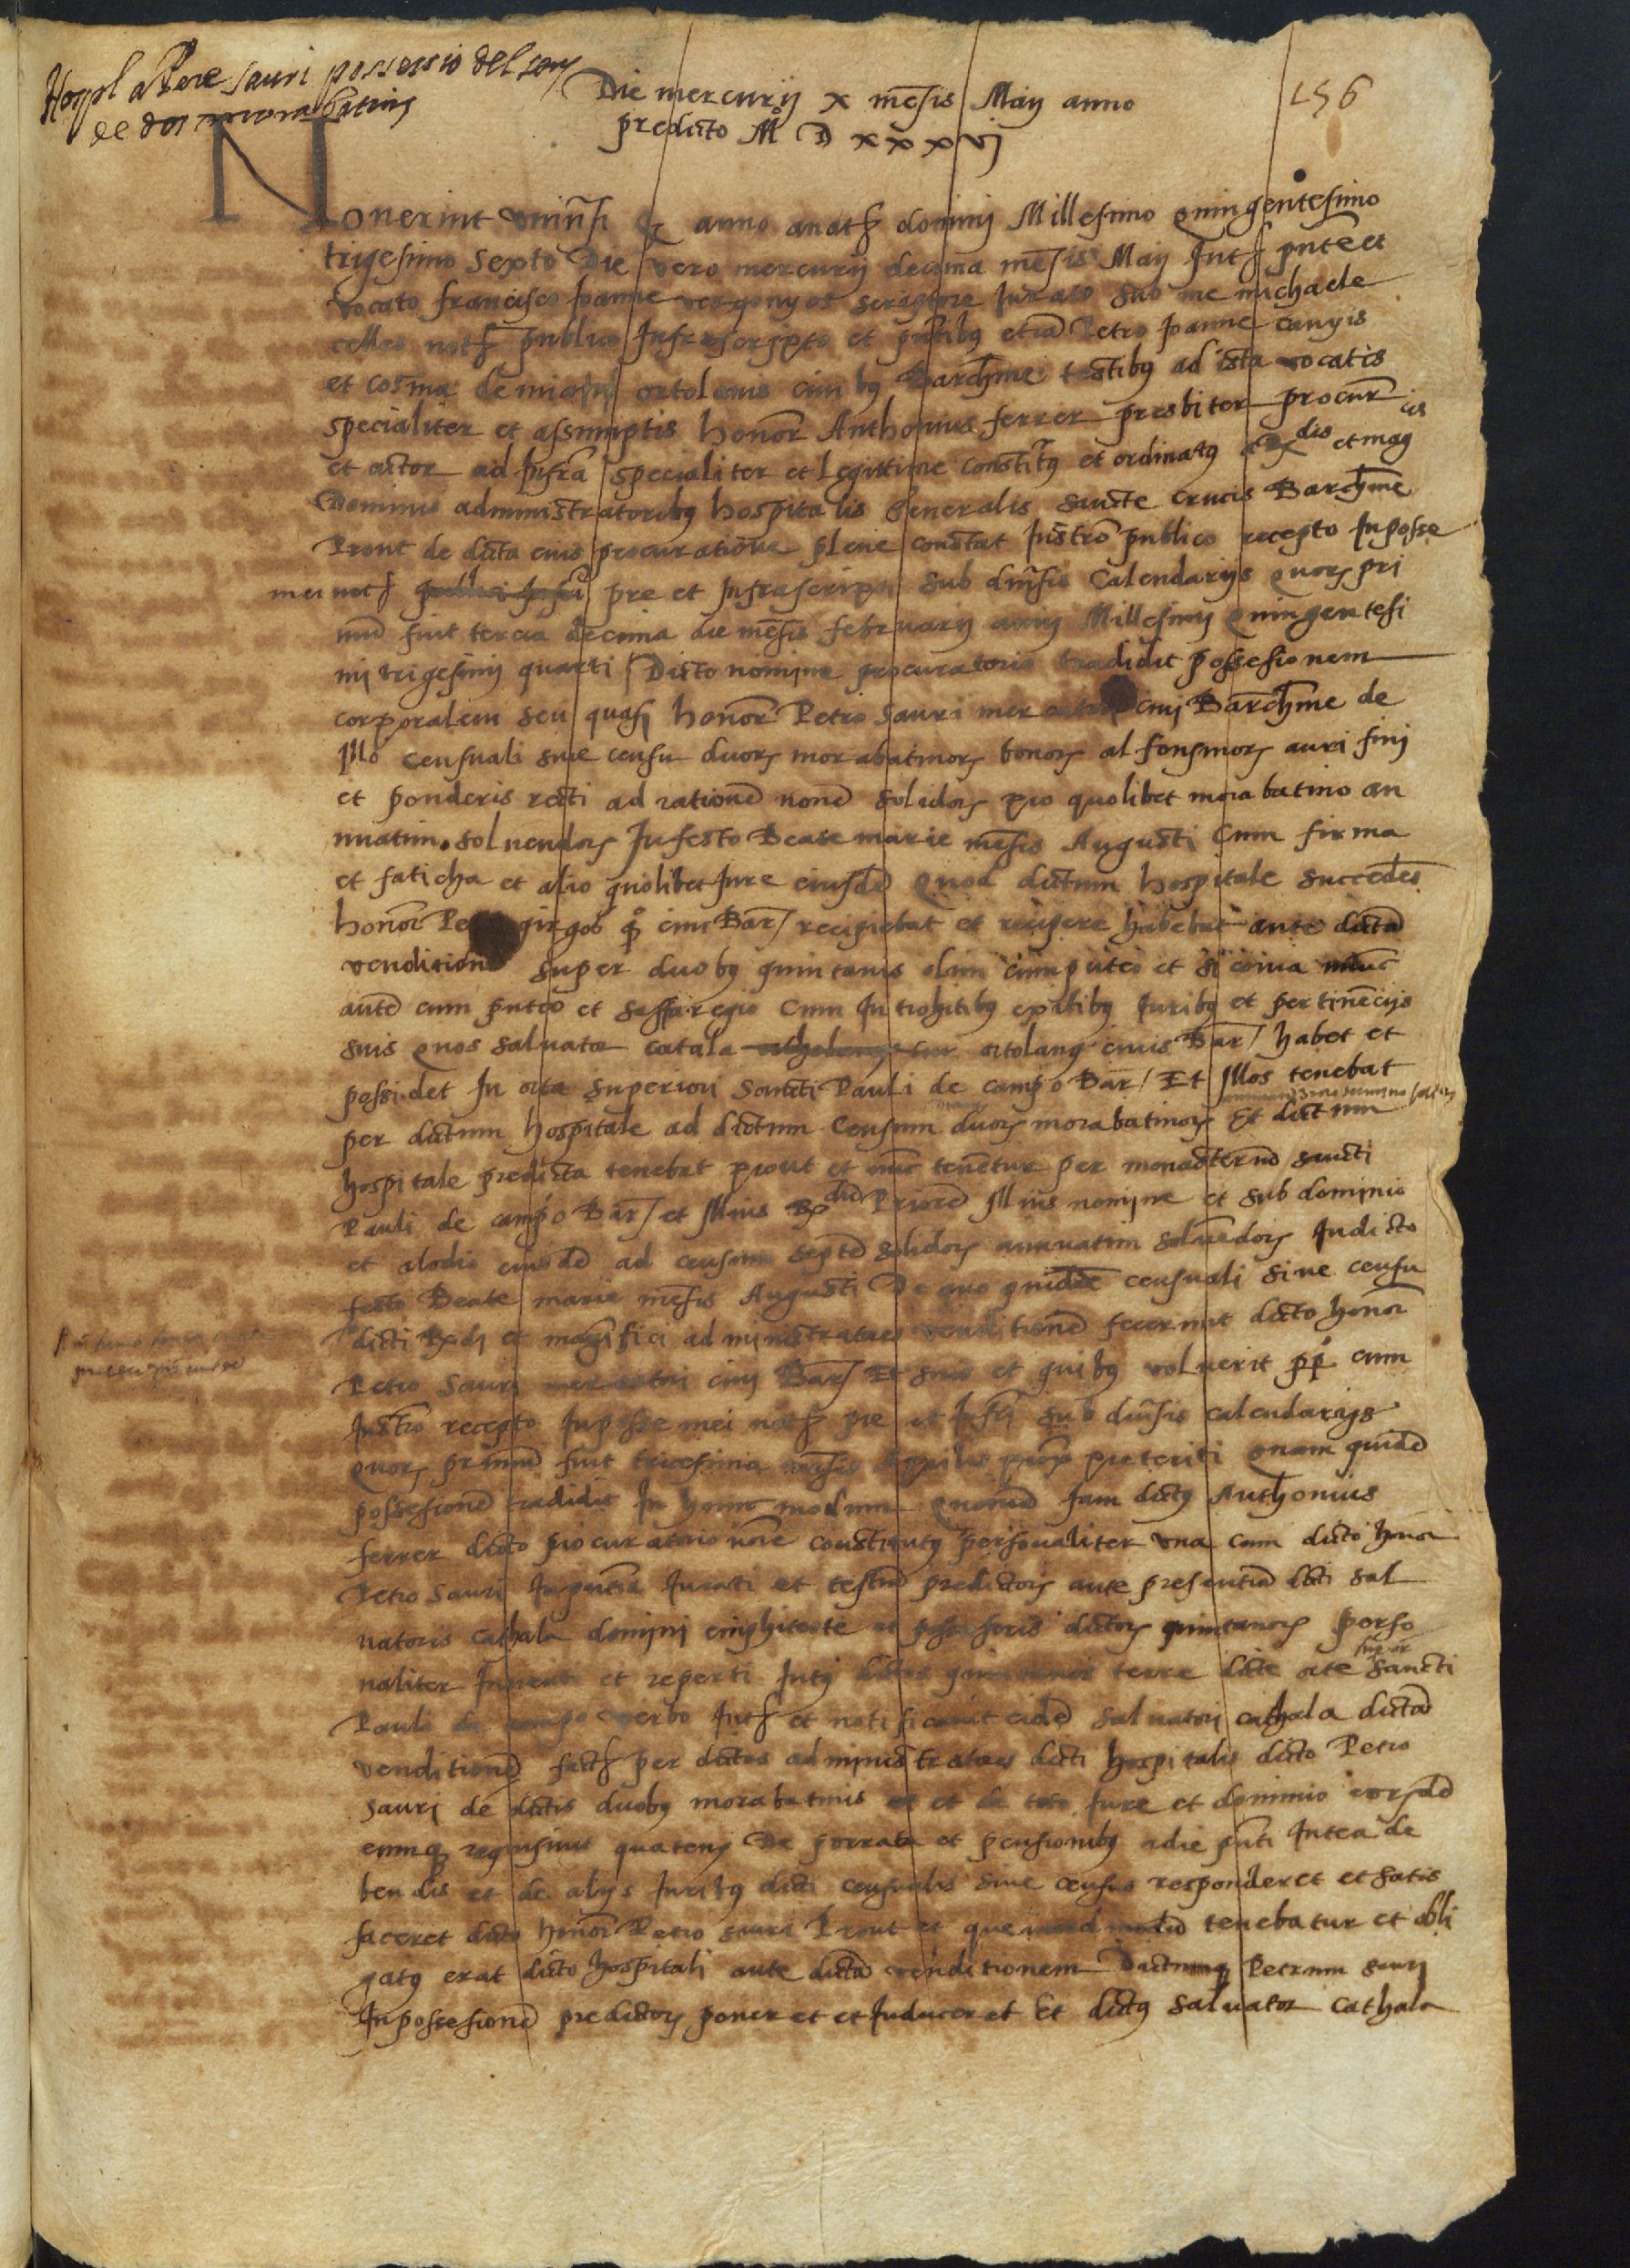 Hospl a Pere Sauri possessio del cens
de dos morabatins
Die mercurij x mēsis Maij anno
predicto Mº D xxxvj
156
Nouerint vniũsi &c anno a natƺ dominj Millesimo quingentesimo
trigesimo sexto Die vero mercurij decima mēsis Maij Jntƺ pñte et
vocato francisco Joanne vergonyos scriptore Jurato sub me michaele
celles notƺ publico Jnfrascripto et pñtibꝰ etiã Petro Joanne canyis
et cosma ortolanis ciuibꝰ Barchñe testibꝰ ad ista vocatis
specialiter et assumptis honor̃ Anthonius ferrer presbiter procur̃
et actor ad Jnfrã specialiter et legittime constitꝰ et ordinatꝰ a Rdis et magcis
Dominis administratoribꝰ hospitalis generalis sancte crucis Barchñe
Prout de dicta eius procuratione plene constat Jnstrõ publico recepto Jnposse
mei notƺ pre et Jnfrascripti sub diũsis Calendarijs Quorƺ pri
mũ fuit tercia decima die mēsis februarij annj Millesimj quingentesi
mj trigesimj quarti Dicto nomine procuratorio tradidit possesionem
corporalem seu quasj honor̃ Petro Sauri mercatori ciuj Barchñe de
Jllo censuali siue censu duorƺ morabatinorƺ bonorƺ alfonsinorƺ auri finj
et ponderis recti ad rationẽ nouẽ solidorƺ pro quolibet morabatino an
nuatim soluendorƺ Jn festo Beate marie mēsis Augusti Cum firma
et faticha et alio quolibet Jure eiusdẽ Quod dictum hospitale succedẽs
honor̃ Pe girgos qº ciui Bar̃/ recipiebat et recipere habebat ante dictã
venditionẽ super duobꝰ quintanis olim cum puteo et sicoiua nunc
autẽ cum puteo et saffaregio Cum Jntrohitibꝰ exitibꝰ Juribꝰ et pertinẽcijs
suis Quos saluator catala ortolanꝰ ciuis Bar̃/ habet et
possidet Jn orta superiori Sancti Pauli de campo Bar̃/ Et Jllos tenebat
per dictum hospitale ad dictum Censum duorƺ morabatinorƺ Et dictum
hospitale predicta tenebat prout et nũc tenẽtur per monasteriũ sancti
Pauli de campo Bar̃/ et Jllius Rdũ Priorẽ Jllius nomine et sub dominio
et alodio eiusdẽ ad censum septẽ solidorƺ annuatim soluẽdorƺ Jn dicto
festo Beate marie mēsis Augusti De quo quidẽ censuali siue censu
dicti Rdj et magnifici administratores venditionẽ fecerunt dicto honor̃
Petro Sauri mercatori ciuj Bar̃/ Et suis et quibꝰ voluerit ppº cum
Jnstrõ recepto Jnposse mei notƺ pre et Jnfrj sub diũsis calendarijs
Quorƺ primũ fuit tricesima mēsis Aprilis prox preteriti Quam quidẽ
possesionẽ tradidit Jn hunc modum Quoniã Jam dictꝰ Anthonius
ferrer dicto procuratorio noĩe constitutꝰ personaliter vna cum dicto honor̃
Petro Sauri Jn pñtia Jurati et testiũ predictorƺ ante presentiã dcti Sal
uatoris cathala dominj emphiteote et possessoris dictorƺ quintanorƺ perso
naliter Jnuenti et reperti Jntꝰ dictos quintanos terre dicte orte super̃ Sancti
Pauli de campo verbo Jntƺ et notificauit eidẽ saluatorj cathala dictã
venditionẽ factƺ per dictos administratores dicti hospitalis dicto Petro
Sauri de dictis duobꝰ morabatinis et de toto Jure et dominio eorƺdẽ
eumqƺ requisiuit quatenꝰ De porrata et pensionibꝰ a die pñti Jntea de
bendis et de alijs Juribꝰ dicti censualis siue census responderet et satis
faceret dicto honor̃ Petro sauri Prout et quemadmodũ tenebatur et obli
gatꝰ erat dicto hospitali ante dictã venditionem Dictumqƺ Petrum Sauri
Jn possesionẽ predictorƺ poneret et Jnduceret Et dictꝰ saluator cathala